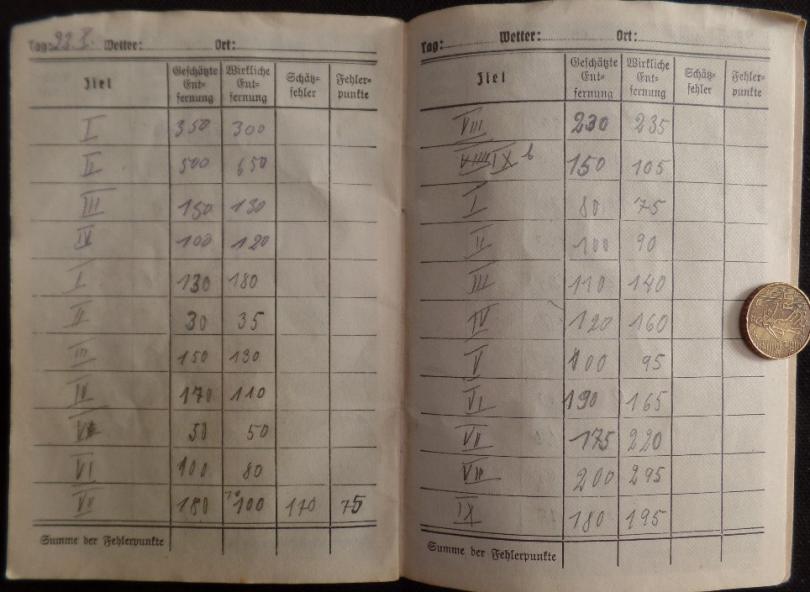 Tag: 22. Wetter: Ort:
Ziel Geschätzte Entfernung Wirkliche Entfernung Schätzfehler Fehlerpunkte
I 350 300
II 500 650
III 150 130
IV 100 120
I 130 180
II 30 35
III 150 130
IV 170 110
V 50 50
VI 100 80
VII 180 100 110 75
Summe der Fehlerpunkte
Tag: Wetter: Ort:
Ziel Geschätzte Entfernung Wirkliche Entfernung Schätzfehler Fehlerpunkte
VIII 230 235
XI b 150 105
I 80 75
II 100 90
III 110 140
IV 120 160
V 100 95
VI 190 165
VII 175 220
VIII 200 295
IX 180 195
Summe der Fehlerpunkte